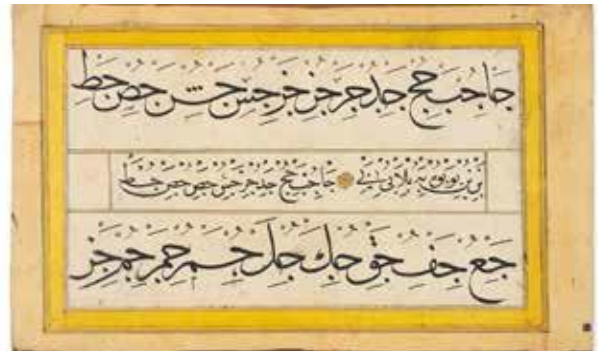 جا جب جج جد جر جر جر جس جس جص جط
بن بن بو بو به بلا بى جا جب جج جد جر جس جص جط
جع جف جق جك جل جم